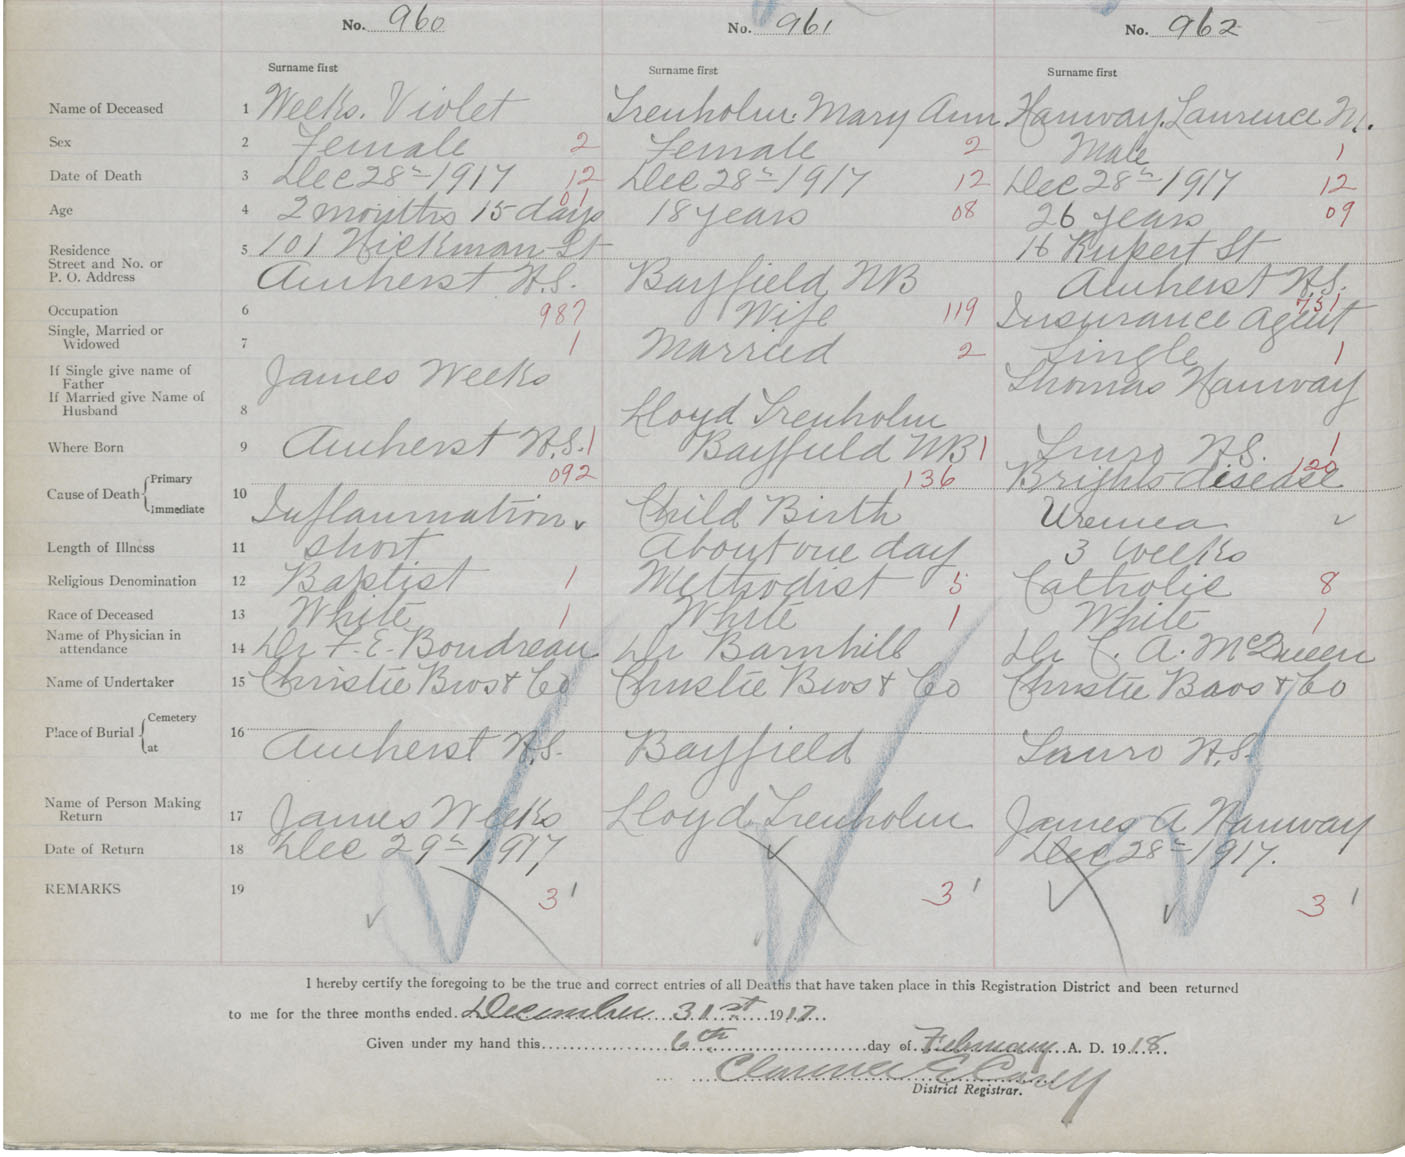 No. 960 No. 961 No. 962
Surname first Surname first Surname first
Name of Deceased 1 Weeks. Violet Trenholm. Mary Ann Hanway. Laurence M.
Sex 2 Female 2 Female 2 Male 1
Date of Death 3 Dec 28th 1917 12 Dec 28th 1917 12 Dec 28th 1917 12
Age 4 2 months 15 days 01 18 years 08 26 years 09
Residence 5 101 Hickman St 16 Rupert St
Street and No. or
P. O. Address Amherst N.S. Bayfield NB Amherst N.S.
Occupation 6 987 Wife 119 Insurance Agent 751
Single, Married or
Widowed 7 1 Married 2 Single 1
If Single give name of
Father James Weeks Thomas Hanway
If Married give Name of
Husband 8 Lloyd Trenholm
Where Born 9 Amherst N.S. 1 Bayfield NB 1 Truro N.S. 1
Cause of Death Primary 092 136 Brights disease 120
Immediate 10 Inflammation Child Birth Uremea
Length of Illness 11 short About one day 3 weeks
Religious Denomination 12 Baptist 1 Methodist 5 Catholic 8
Race of Deceased 13 White 1 White 1 White 1
Name of Physician in
attendance 14 Dr F. E. Boudreau Dr Barnhill Dr C. A. McQueen
Name of Undertaker 15 Christie Bros & Co Christie Bros & Co Christie Bros & Co
Place of Burial Cemetery 16
at Amherst N.S. Bayfield Truro N.S.
Name of Person Making
Return 17 James Weeks Lloyd Trenholm James A Hanway
Date of Return 18 Dec 29th 1917 Dec 28th 1917.
REMARKS 19 3 1 3 1 3 1
I hereby certify the foregoing to be the true and correct entries of all Deaths that have taken place in this Registration District and been returned
to me for the three months ended. December 31st 1917
Given under my hand this 6th day of February A. D. 1918
Clarence E Casey
District Registrar.